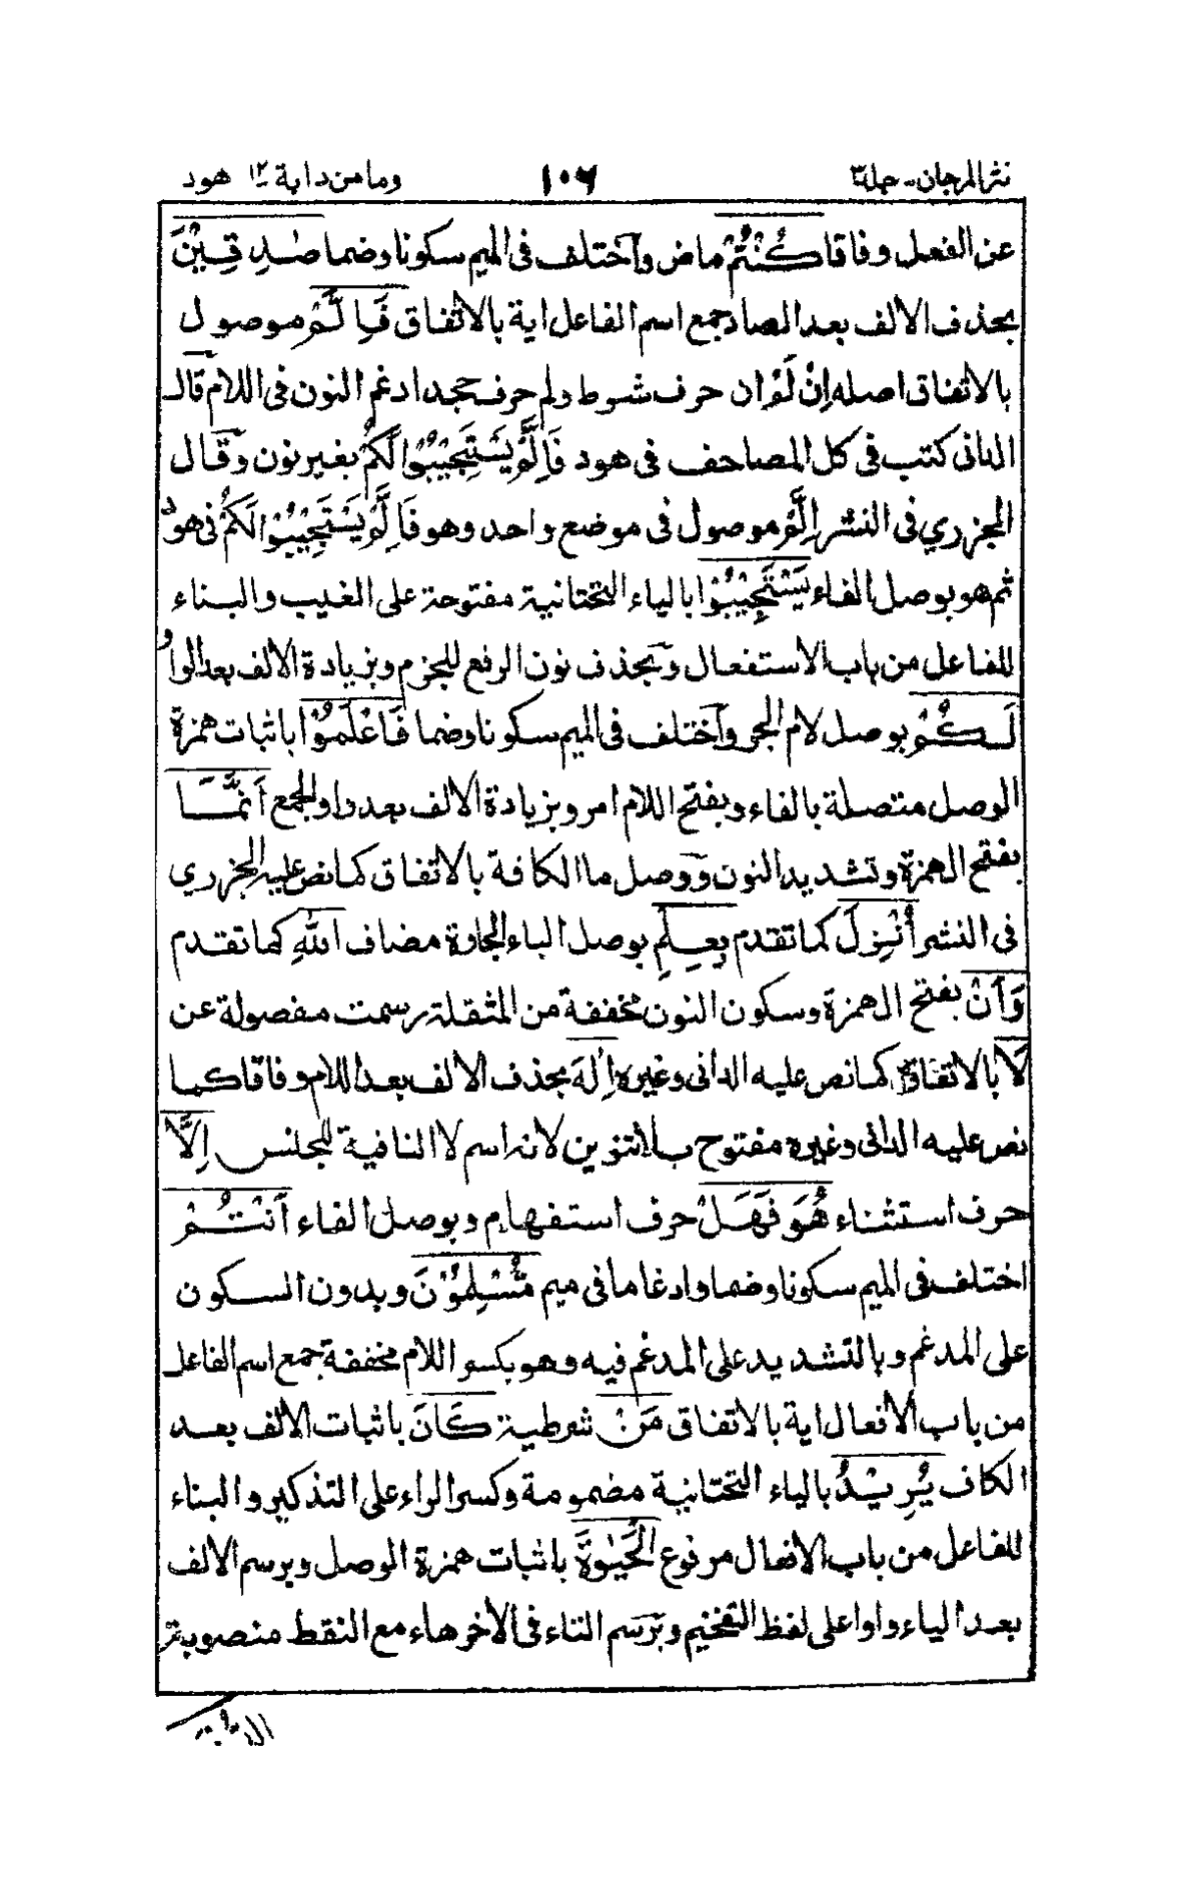 نثر المرجان - جلد ٣
١٠٦
وما من دابة ١٢ هود
عن الفعل وفاقا كُنْتُمْ ماض واختلف فى الميم سكونا وضما صٰدِقِيْنَ
بحذف الالف بعد الصاد جمع اسم الفاعل اية بالاتفاق فَاِلَّمْ موصول
بالاتفاق اصله اِنْ لَمْ ان حرف شرط ولم حرف جحد ادغم النون فى اللام قال
الدانى كتب فى كل المصاحف فى هود فَاِلَّمْ يَسْتَجِيْبُوْا لَكُمْ بغير نون وقال
الجزري فى النشر اِلَّمْ موصول فى موضع واحد وهو فَاِلَّمْ يَسْتَجِيْبُوْا لَكُمْ فى هود
ثم هو بوصل الفاء يَسْتَجِيْبُوْا بالياء التحتانية مفتوحة على الغيب والبناء
للفاعل من باب الاستفعال وبحذف نون الرفع للجزم وبزيادة الالف بعد الواو
لَكُمْ بوصل لام الجر واختلف فى الميم سكونا وضما فَاعْلَمُوْا باثبات همزة
الوصل متصلة بالفاء وبفتح اللام امر وبزيادة الالف بعد واو الجمع اَنَّمَا
بفتح الهمزة وتشديد النون ووصل ما الكافة بالاتفاق كما نص عليه الجزري
فى النشر اُنْزِلَ كما تقدم بِعِلْمِ بوصل الباء الجارة مضاف اللهِ كما تقدم
وَاَنْ بفتح الهمزة وسكون النون مخففة من المثقلة رسمت مفصولة عن
لَا بالاتفاق كما نص عليه الدانى وغيره اِلٰهَ بحذف الالف بعد اللام وفاقا كما
نص عليه الدانى وغيره مفتوح بلا تنوين لانه اسم لا النافية للجنس اِلَّا
حرف استثناء هُوَ فَهَلْ حرف استفهام وبوصل الفاء اَنْتُمْ
اختلف فى الميم سكونا وضما وادغاما فى ميم مُّسْلِمُوْنَ وبدون السكون
على المدغم وبالتشديد على المدغم فيه وهو بكسر اللام مخففة جمع اسم الفاعل
من باب الافعال اية بالاتفاق مَنْ شرطية كَانَ باثبات الالف بعد
الكاف يُرِيْدُ بالياء التحتانية مضمومة وكسر الراء على التذكير والبناء
للفاعل من باب الافعال مرفوع الْحَيٰوةَ باثبات همزة الوصل وبرسم الالف
بعد الياء واوا على لفظ التفخيم وبرسم التاء فى الأخر هاء مع النقط منصوبة